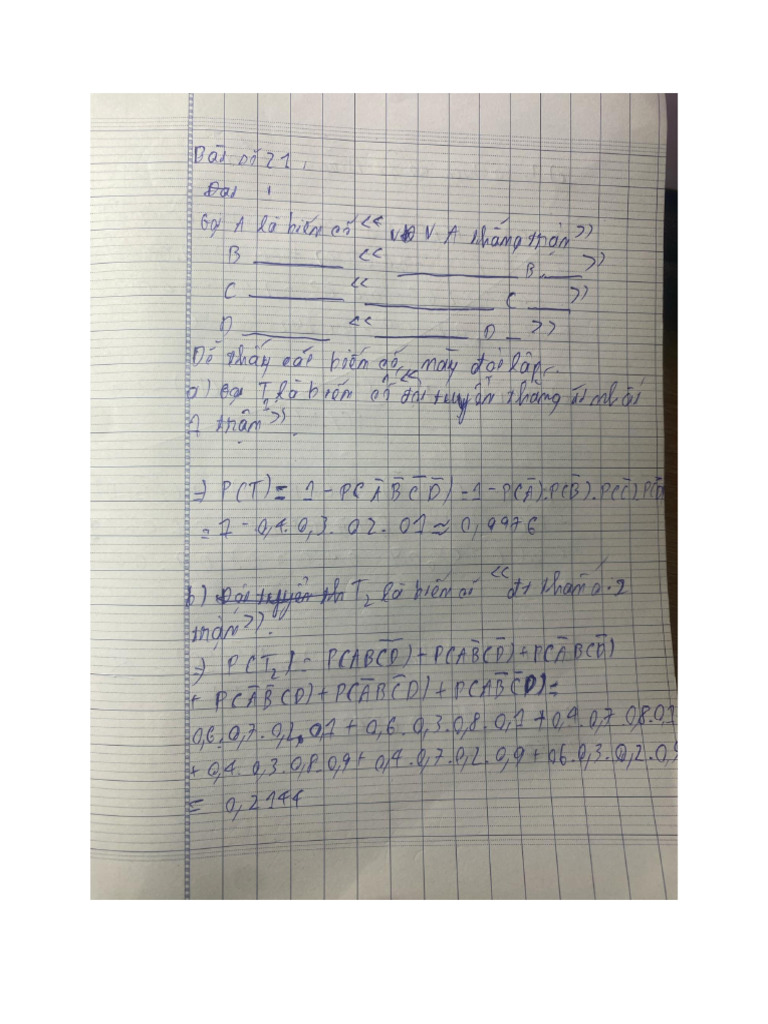 Bài số 21.
Bài 1
Gọi A là biến cố << VĐV A thắng trận >>
B ______ << ______ B ___ >>
C ______ << ______ C ___ >>
D ______ << ______ D __ >>
Dễ thấy các biến cố này độc lập.
a) Gọi T là biến cố << đội tuyển thắng ít nhất
1 trận >>.
=> P(T) = 1 - P(A̅ B̅ C̅ D̅) = 1 - P(A̅).P(B̅).P(C̅).P(D̅)
= 1 - 0,4. 0,3. 02. 01 ≈ 0,9976
b) T₂ là biến cố << đt thắng 2
trận >>.
=> P(T₂) = P(ABC̅D̅) + P(AB̅CD̅) + P(A̅BCD̅)
+ P(A̅B̅CD) + P(A̅BC̅D) + P(AB̅C̅D) =
0,6. 0,7. 0,2. 0,1 + 0,6. 0,3. 0,8. 0,1 + 0,4. 0,7 0,8. 01
+ 0,4. 0,3. 0,8. 0,9 + 0,4. 0,7. 0,2. 0,9 + 06. 0,3. 0,2. 0,9
= 0,2144